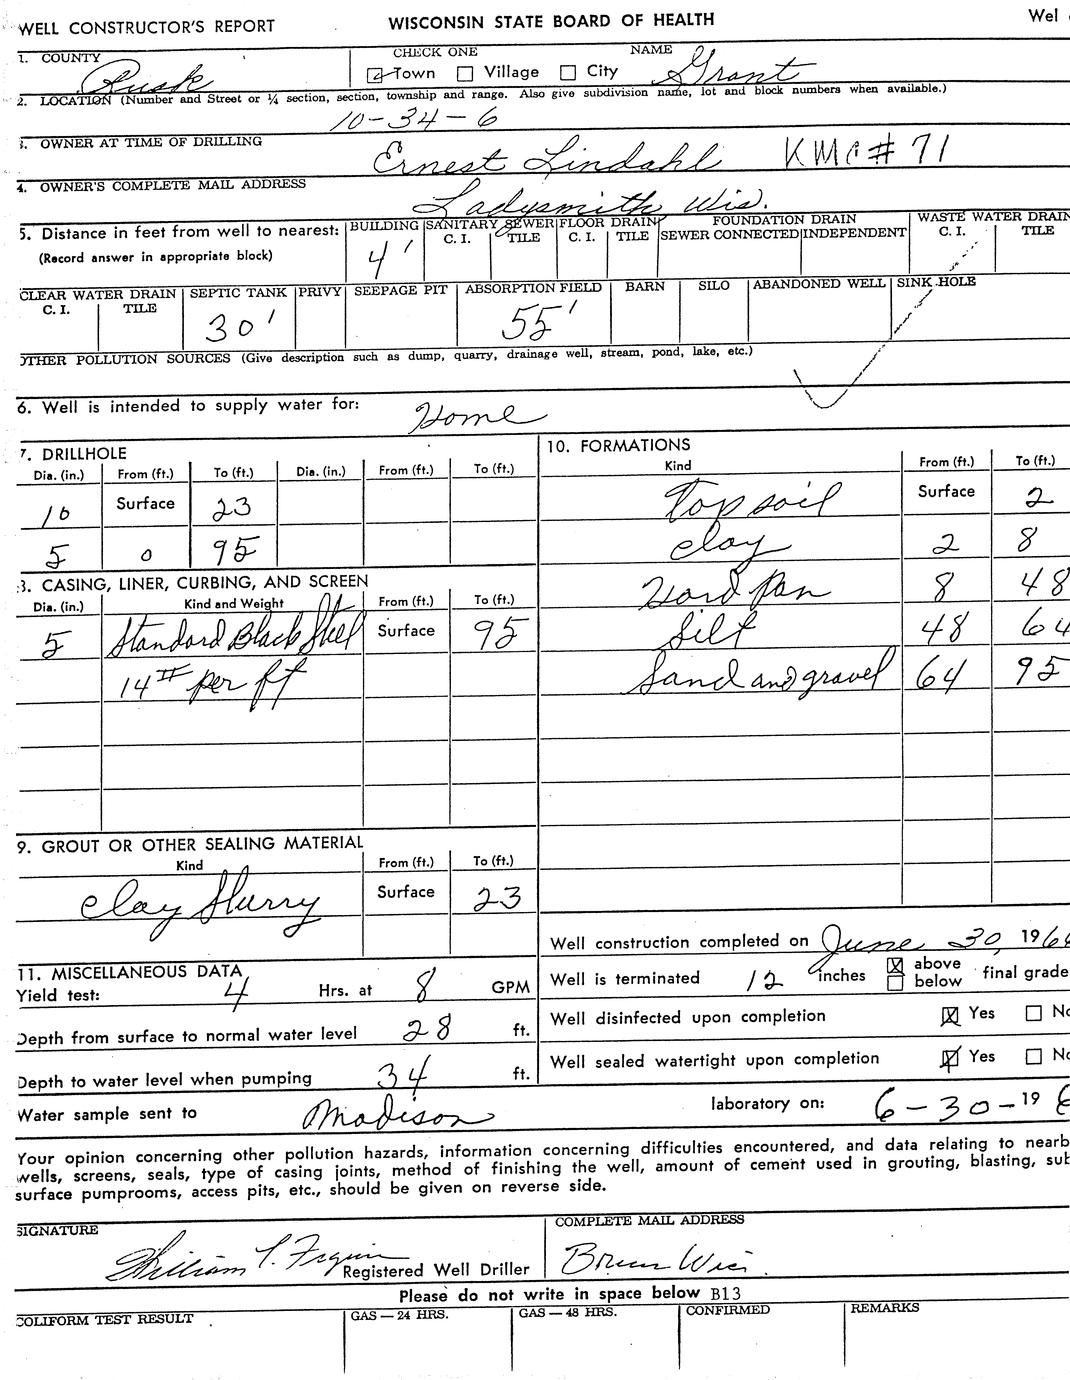 WELL CONSTRUCTOR'S REPORT WISCONSIN STATE BOARD OF HEALTH Wel
1. COUNTY CHECK ONE NAME
Rusk Town Village City Grant
2. LOCATION (Number and Street or ¼ section, section, township and range. Also give subdivision name, lot and block numbers when available.)
10-34-6
3. OWNER AT TIME OF DRILLING
Ernest Lindahl KMC# 71
4. OWNER'S COMPLETE MAIL ADDRESS
Ladysmith Wis.
5. Distance in feet from well to nearest: BUILDING SANITARY SEWER FLOOR DRAIN FOUNDATION DRAIN WASTE WATER DRAIN
C. I. TILE C. I. TILE SEWER CONNECTED INDEPENDENT C. I. TILE
(Record answer in appropriate block) 4'
CLEAR WATER DRAIN SEPTIC TANK PRIVY SEEPAGE PIT ABSORPTION FIELD BARN SILO ABANDONED WELL SINK HOLE
C. I. TILE
30' 55'
OTHER POLLUTION SOURCES (Give description such as dump, quarry, drainage well, stream, pond, lake, etc.)
6. Well is intended to supply water for: Home
7. DRILLHOLE
Dia. (in.) From (ft.) To (ft.) Dia. (in.) From (ft.) To (ft.)
10 Surface 23
5 0 95
8. CASING, LINER, CURBING, AND SCREEN
Dia. (in.) Kind and Weight From (ft.) To (ft.)
5 Standard Black Steel Surface 95
14# per ft
9. GROUT OR OTHER SEALING MATERIAL
Kind From (ft.) To (ft.)
Clay Slurry Surface 23
10. FORMATIONS
Kind From (ft.) To (ft.)
Top soil Surface 2
clay 2 8
Hard pan 8 48
Silt 48 64
Sand and gravel 64 95
Well construction completed on June 30, 196
Well is terminated 12 inches above below final grade
Well disinfected upon completion Yes No
Well sealed watertight upon completion Yes No
11. MISCELLANEOUS DATA
Yield test: 4 Hrs. at 8 GPM
Depth from surface to normal water level 28 ft.
Depth to water level when pumping 34 ft.
Water sample sent to Madison laboratory on: 6-30-19 6
Your opinion concerning other pollution hazards, information concerning difficulties encountered, and data relating to nearb
wells, screens, seals, type of casing joints, method of finishing the well, amount of cement used in grouting, blasting, sub
surface pumprooms, access pits, etc., should be given on reverse side.
SIGNATURE COMPLETE MAIL ADDRESS
William Registered Well Driller Wis.
Please do not write in space below B13
COLIFORM TEST RESULT GAS — 24 HRS. GAS — 48 HRS. CONFIRMED REMARKS